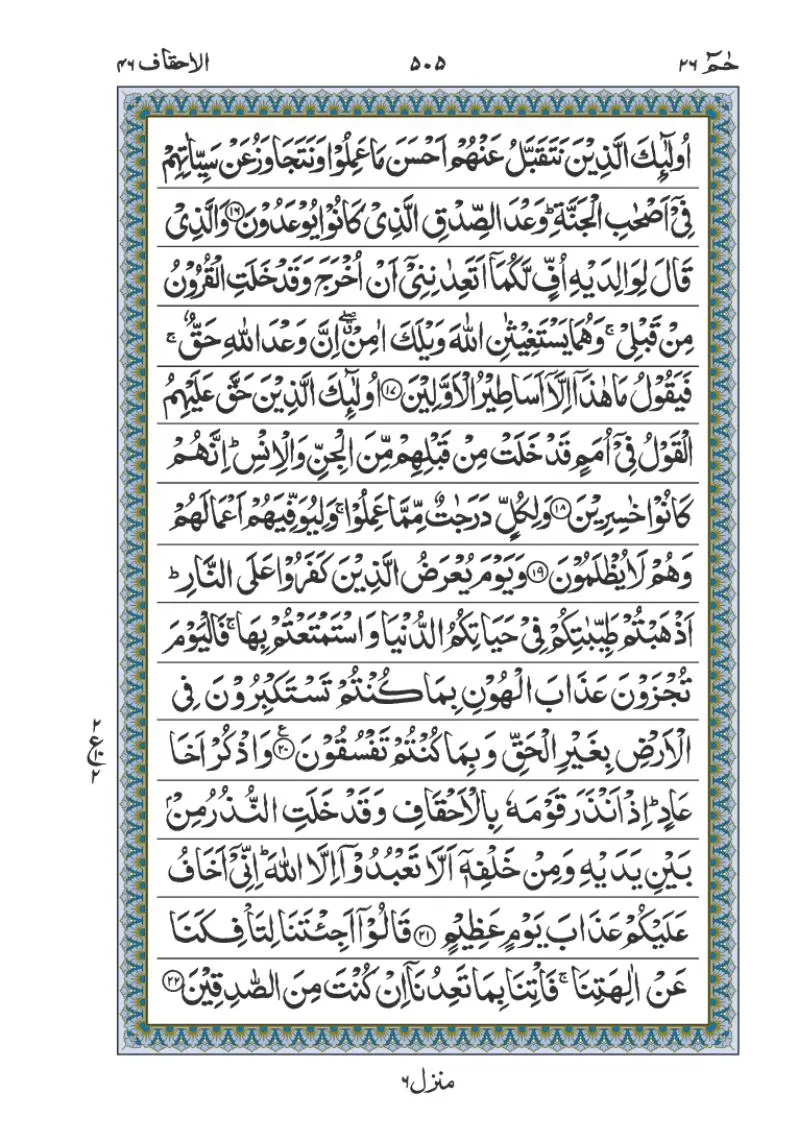 حٰمٓ ٢٦ ٥٠٥ الاحقاف ٤٦
اُولٰٓئِكَ الَّذِيْنَ نَتَقَبَّلُ عَنْهُمْ اَحْسَنَ مَا عَمِلُوْا وَنَتَجَاوَزُ عَنْ سَيِّاٰتِهِمْ
فِيْٓ اَصْحٰبِ الْجَنَّةِ ؕ وَعْدَ الصِّدْقِ الَّذِيْ كَانُوْا يُوْعَدُوْنَ ﴿١٦﴾ وَالَّذِيْ
قَالَ لِوَالِدَيْهِ اُفٍّ لَّكُمَآ اَتَعِدٰنِنِيْٓ اَنْ اُخْرَجَ وَقَدْ خَلَتِ الْقُرُوْنُ
مِنْ قَبْلِيْ ۚ وَهُمَا يَسْتَغِيْثٰنِ اللّٰهَ وَيْلَكَ اٰمِنْ ۖۗ اِنَّ وَعْدَ اللّٰهِ حَقٌّ ۚ
فَيَقُوْلُ مَا هٰذَآ اِلَّآ اَسَاطِيْرُ الْاَوَّلِيْنَ ﴿١٧﴾ اُولٰٓئِكَ الَّذِيْنَ حَقَّ عَلَيْهِمُ
الْقَوْلُ فِيْٓ اُمَمٍ قَدْ خَلَتْ مِنْ قَبْلِهِمْ مِّنَ الْجِنِّ وَالْاِنْسِ ؕ اِنَّهُمْ
كَانُوْا خٰسِرِيْنَ ﴿١٨﴾ وَلِكُلٍّ دَرَجٰتٌ مِّمَّا عَمِلُوْا ۚ وَلِيُوَفِّيَهُمْ اَعْمَالَهُمْ
وَهُمْ لَا يُظْلَمُوْنَ ﴿١٩﴾ وَيَوْمَ يُعْرَضُ الَّذِيْنَ كَفَرُوْا عَلَى النَّارِ ؕ
اَذْهَبْتُمْ طَيِّبٰتِكُمْ فِيْ حَيَاتِكُمُ الدُّنْيَا وَاسْتَمْتَعْتُمْ بِهَا ۚ فَالْيَوْمَ
تُجْزَوْنَ عَذَابَ الْهُوْنِ بِمَا كُنْتُمْ تَسْتَكْبِرُوْنَ فِي
الْاَرْضِ بِغَيْرِ الْحَقِّ وَبِمَا كُنْتُمْ تَفْسُقُوْنَ ﴿٢٠﴾ ع وَاذْكُرْ اَخَا
عَادٍ ؕ اِذْ اَنْذَرَ قَوْمَهٗ بِالْاَحْقَافِ وَقَدْ خَلَتِ النُّذُرُ مِنْۢ
بَيْنِ يَدَيْهِ وَمِنْ خَلْفِهٖٓ اَلَّا تَعْبُدُوْٓا اِلَّا اللّٰهَ ؕ اِنِّيْٓ اَخَافُ
عَلَيْكُمْ عَذَابَ يَوْمٍ عَظِيْمٍ ﴿٢١﴾ قَالُوْٓا اَجِئْتَنَا لِتَاْفِكَنَا
عَنْ اٰلِهَتِنَا ۚ فَاْتِنَا بِمَا تَعِدُنَآ اِنْ كُنْتَ مِنَ الصّٰدِقِيْنَ ﴿٢٢﴾
منزل ٦